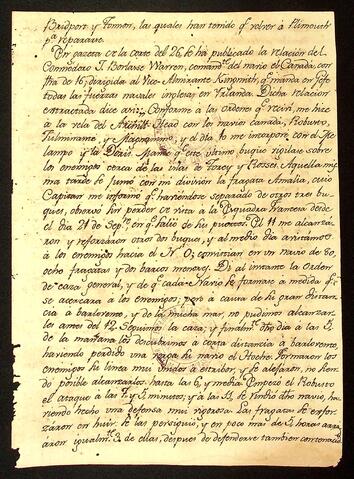 Bridport y Fomon, las quales han tenido q.e volver á Plimouth
á repararse.
Por gazeta de la corte del 26, se há publicado la relación del
Commodoro J. Borlase Warren, comand.te del navio el Canada, con
fha de 16; dirigida al Vice-Almirante Kingsmith, q.e manda en gefe
todas las fuerzas navales inglesas en Yrlanda. Dicha relación
extractada dice asi: Conforme á las ordenes q.e recivi, me hice
á la vela del Achill-Head con los navios canada, Robusto,
Fulminante, y Magnanimo, y el dia 10 me incorporé con el Re-
lampago y la Deril. Mandé q.e este ultimo buque vigilase sobre
los enemigos cerca de las islas de Torey y Rosses. Aquella mis-
ma tarde se juntó con mi división la fragata Amalia, cuio
Capitan me informó q.e haviendose separado de otros tres bu-
ques, observó sin perder de vista á la Esquadra francesa desde
el dia 21 de Sep.re en q.e salió de sus puertos. El 11 me alcanza-
ron y reforzáron otros dos buques, y al medio dia avistamos
á los enemigos hacia el N.O; consistian en un navio de 80,
ocho fragatas y dos barcos menores. Di al instante la orden
de caza general, y de q.e cada Navio se formase á medida q.e
se acercára á los enemigos; pero á causa de su gran distan-
cia á barlovento, y de la mucha mar, no pudimos alcanzar-
les antes del 12. Seguimos la caza; y finalm.te dho dia á las 5
de la mañana los descubrimos á corta distancia á barlovento,
haviendo perdido una verga su navio el Hoche. Formaron los
enemigos su linea mui unidos á estribor, y se alejaron, no sien-
do posible alcanzarlos hasta las 6, y media. Empezó el Robusto
el ataque á las 7 y 3 minutos; y á las 11 se rindió dho navio, ha-
viendo hecho una defensa mui rigorosa. Las fragatas se esfor-
zaron en huir. Se las persiguió, y en poco mas de 5 horas arri-
áron igualm.te 3 de ellas, despues de defenderse tambien con tenacid.d